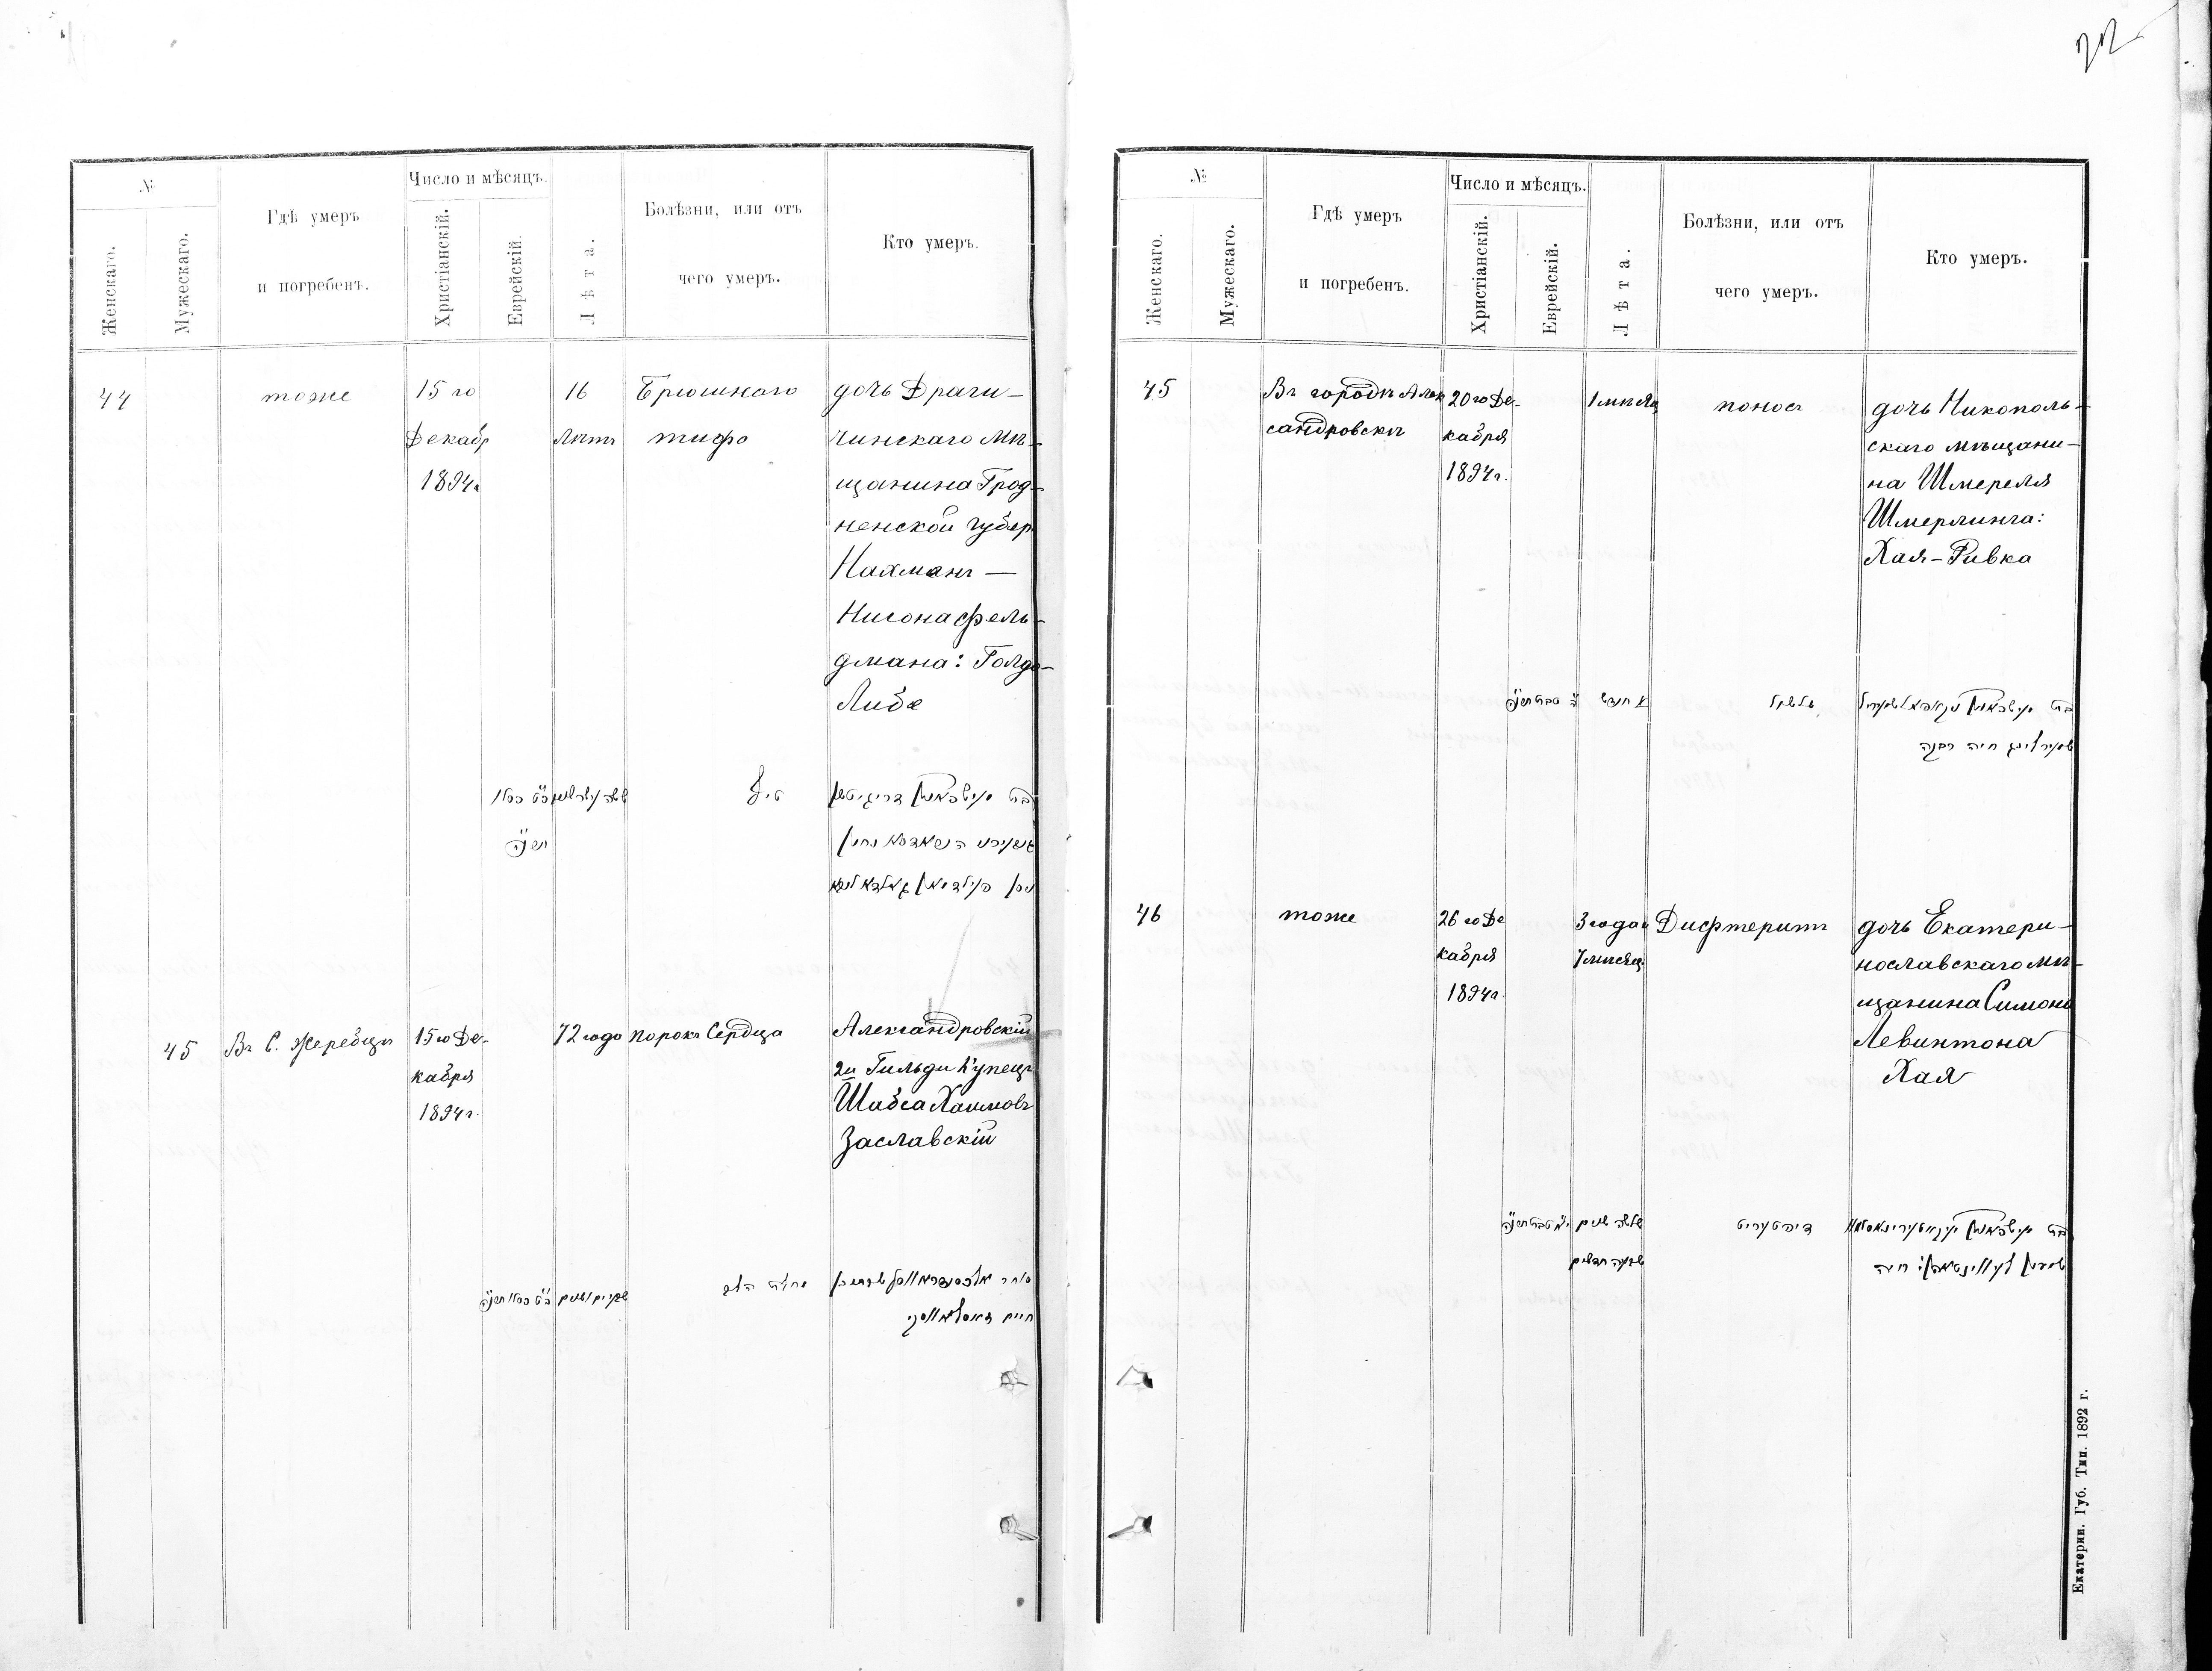 №
Женскаго.
Мужескаго.
Гдѣ умеръ
и погребенъ.
Число и мѣсяцъ.
Христіанскій.
Еврейскій.
Лѣта.
Болѣзни, или отъ
чего умеръ.
Кто умеръ.
44
тоже
15 го
Декабр
1894г
16
лѣтъ
Брюшнаго
тифо
дочь Драги-
чинскаго мѣ-
щанина Грод-
ненской губер
Нахманъ —
Нисона Фель-
дмана: Голда-
Либе
כ״ט כסלו
תרנ״ה
בת
45
Въ С. Жеребцѣ
15 го Де-
кабря
1894г.
72 года
порокъ Сердца
Александровскій
2й Гильди Купецъ
Шабса Хаимовъ
Заславскій
כ״ט כסלו תרנ״ה
חיים זאסלאווסקי
№
Женскаго.
Мужескаго.
Гдѣ умеръ
и погребенъ.
Число и мѣсяцъ.
Христіанскій.
Еврейскій.
Лѣта.
Болѣзни, или отъ
чего умеръ.
Кто умеръ.
45
Въ городѣ Алек
сандровскѣ
20 го Де-
кабря
1894г.
1 мѣсяц
поносъ
дочь Никополь-
скаго мѣщани-
на Шмереля
Шмерлинга:
Хая-Ривка
שמערלינג חיה רבקה
46
тоже
26 го Де
кабря
1894г.
3 года и
7 мѣсяц
Дифтеритъ
дочь Екатери-
нославскаго мѣ-
щанина Симона
Левинтона
Хая
דיפטעריט
שלשה שנים
שבעה חדשים
שמעון לעווינטאהן: חיה
Екатерин. Губ. Тип. 1892 г.